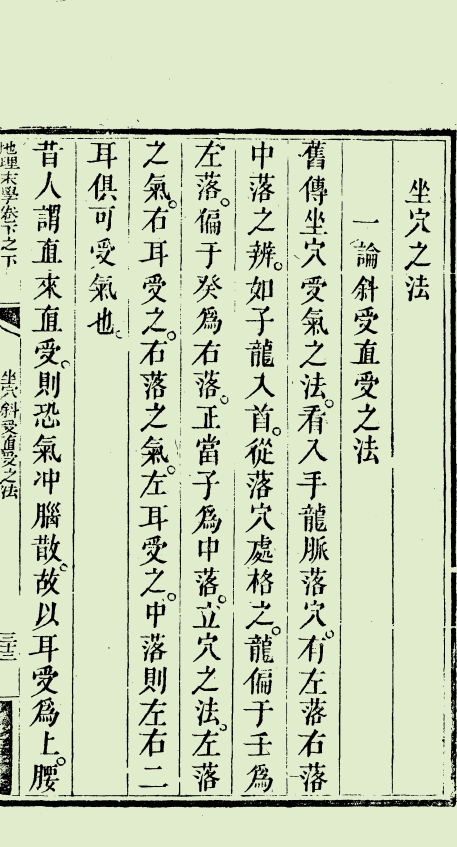 坐穴之法
一論斜受直受之法
舊傳坐穴受氣之法。看入手龍脈落穴。有左落右落
中落之辨。如子龍入首。從落穴處格之。龍偏于壬爲
左落。偏于癸爲右落。正當子爲中落。立穴之法。左落
之氣。右耳受之。右落之氣。左耳受之。中落則左右二
耳俱可受氣也。
昔人謂直來直受。則恐氣冲腦散。故以耳受爲上。腰
地理末學卷下之下
坐穴斜受直受之法
三十三